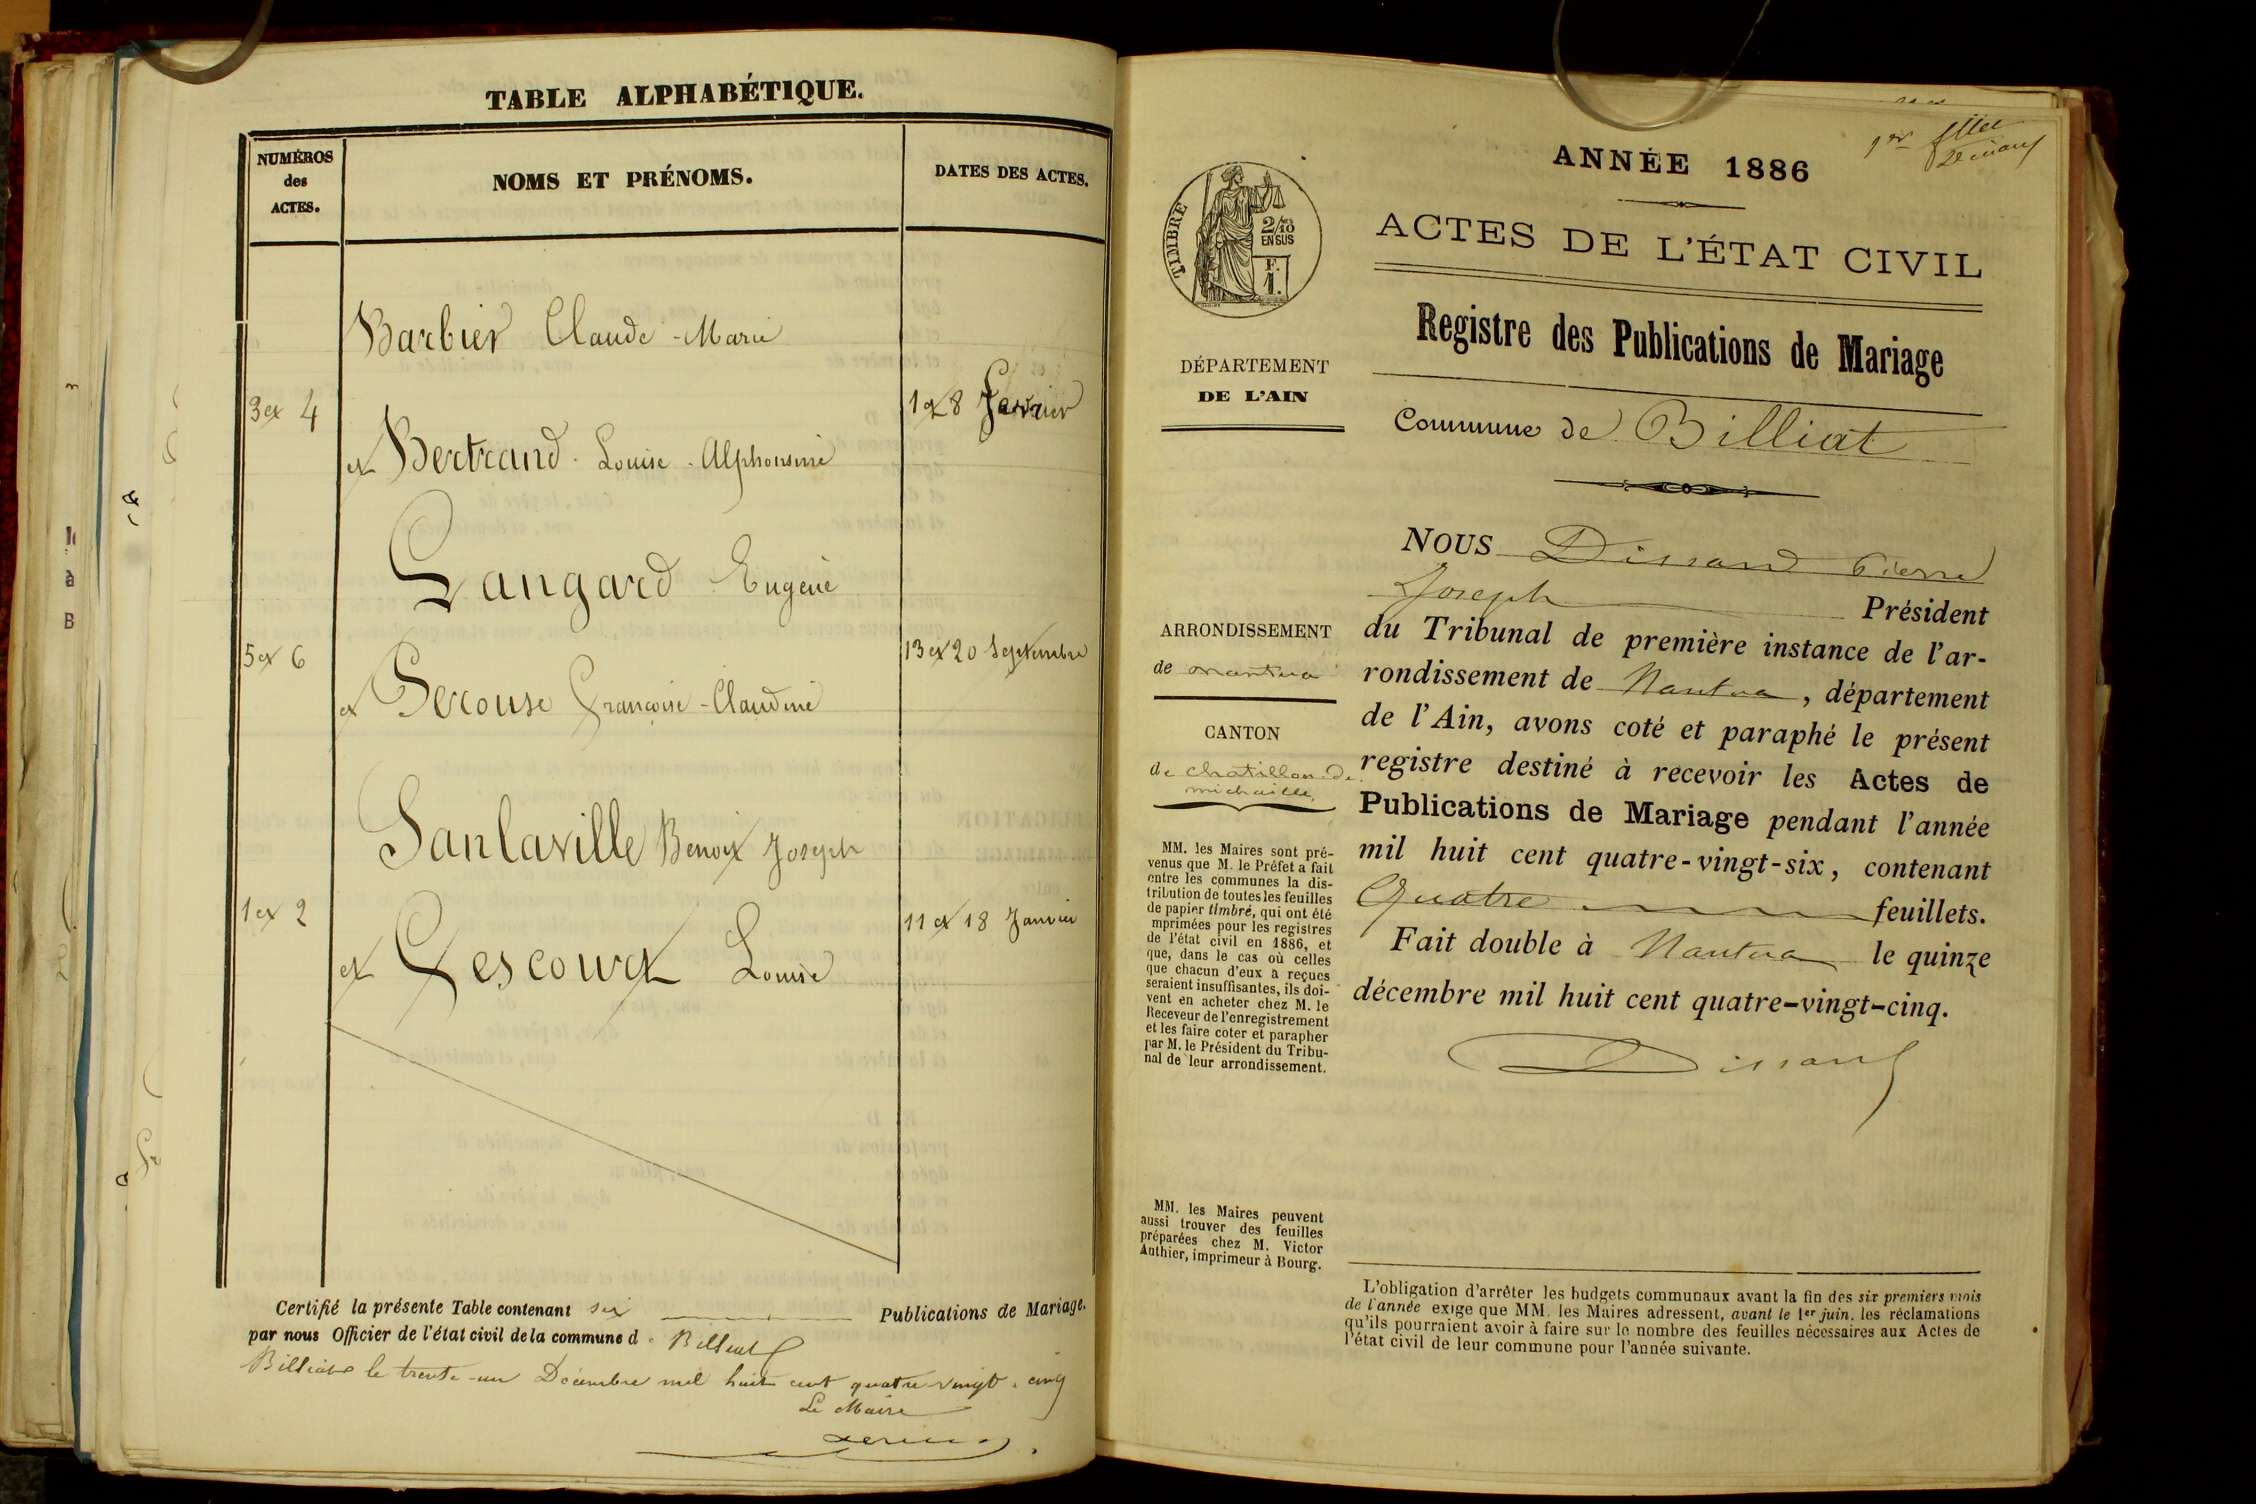 TABLE ALPHABÉTIQUE.
NUMÉROS
des
ACTES.
NOMS ET PRÉNOMS.
DATES DES ACTES.
Barbier Claude-Marie
3 et 4
1 et 8 Février
et Bertrand Louise-Alphonsine
Langard Eugène
5 et 6
13 et 20 Septembre
et Françoise-Claudine
Sanlaville Benoit Joseph
1 et 2
11 et 18 Janvier
et Louise
Certifié la présente Table contenant six Publications de Mariage.
par nous Officier de l'état civil de la commune d Billiat
Billiat le trente-un Décembre mil huit cent quatre vingt-cinq
Le Maire
1er
ANNÉE 1886
ACTES DE L'ÉTAT CIVIL
Registre des Publications de Mariage
Commune de Billiat
TIMBRE
2/10
EN SUS
F.
1.
DÉPARTEMENT
DE L'AIN
ARRONDISSEMENT
de Nantua
CANTON
de chatillon de
michaille
MM. les Maires sont pré-
venus que M. le Préfet a fait
entre les communes la dis-
tribution de toutes les feuilles
de papier timbré, qui ont été
mprimées pour les registres
de l'état civil en 1886, et
que, dans le cas où celles
que chacun d'eux a reçues
seraient insuffisantes, ils doi-
vent en acheter chez M. le
Receveur de l'enregistrement
et les faire coter et parapher
par M. le Président du Tribu-
nal de leur arrondissement.
MM. les Maires peuvent
aussi trouver des feuilles
préparées chez M. Victor
Authier, imprimeur à Bourg.
NOUS Dissard Pierre
Joseph Président
du Tribunal de première instance de l'ar-
rondissement de Nantua, département
de l'Ain, avons coté et paraphé le présent
registre destiné à recevoir les Actes de
Publications de Mariage pendant l'année
mil huit cent quatre-vingt-six, contenant
Quatre feuillets.
Fait double à Nantua le quinze
décembre mil huit cent quatre-vingt-cinq.
Dissard
L'obligation d'arrêter les budgets communaux avant la fin des six premiers mois
de l'année exige que MM. les Maires adressent, avant le 1er juin, les réclamations
qu'ils pourraient avoir à faire sur le nombre des feuilles nécessaires aux Actes de
l'état civil de leur commune pour l'année suivante.